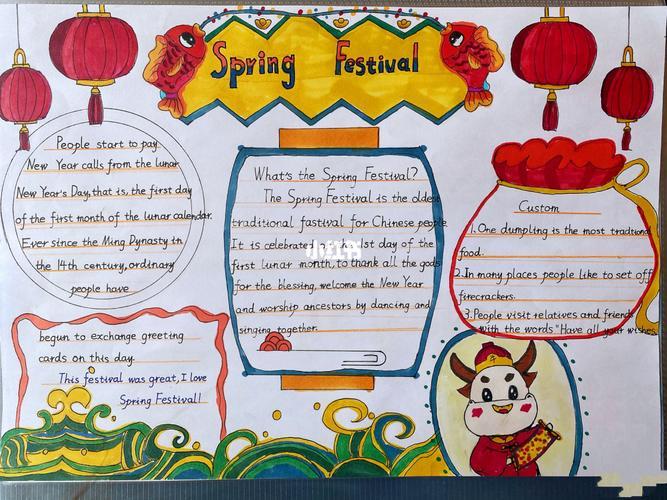 Spring Festival
People start to pay
New Year calls from the lunar
New Year's Day, that is, the first day
of the first month of the lunar calendar.
Ever since the Ming Dynasty in
the 14th century, ordinary
people have
begun to exchange greeting
cards on this day.
This festival was great, I love
Spring Festival!
What's the Spring Festival?
The Spring Festival is the oldest
traditional fastival for Chinese people
It is celebrated the 1st day of the
first lunar month, to thank all the gods
for the blessing, welcome the New Year
and worship ancestors by dancing and
singing together.
小红书
Custom
1. One dumpling is the most traditional
food.
2. In many places people like to set off
firecrackers.
3. People visit relatives and friends
with the words "Have all your wishes